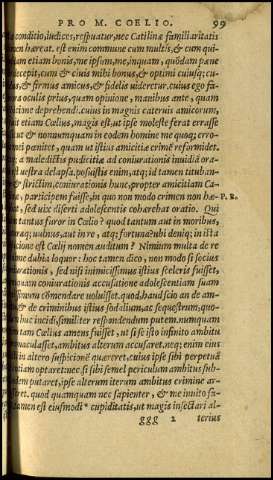 PRO M. COELIO. 99
conditio, iudices, respuatur, nec Catilinæ familiaritatis
men hæreat. est enim commune cum multis, & cum qui-
dam etiam bonis, me ipsum, me, inquam, quōdam pæne
decepit, cum & ciuis mihi bonus, & optimi cuiusq; cu-
dus, & firmus amicus, & fidelis uideretur. cuius ego fa-
oculis prius, quam opinione, manibus ante, quam
deprehendi. cuius in magnis cateruis amicorum,
etiam Cælius, magis est, ut ipse moleste ferat errasse
& nonnumquam in eodem homine me quoq; erro-
pœnitet, quam ut istius amicitiæ crimē reformidet.
a maledictis pudicitiæ ad coniurationis inuidiā ora-
uestra delapsa. posuistis enim, atq; id tamen tituban-
& strictim, coniurationis hunc, propter amicitiam Ca-
participem fuisse, in quo non modo crimen non hæ- P. R.
sed uix diserti adolescentis cohærebat oratio. Qui
tantus furor in Cælio? quod tantum aut in moribus,
uulnus, aut in re, atq; fortuna? ubi deniq; in ista
est Cælij nomen auditum? Nimium multa de re
dubia loquor: hoc tamen dico, non modo si socius
coniurationis, sed nisi inimicissimus istius sceleris fuisset,
coniurationis accusatione adolescentiam suam
cōmendare uoluisset. quod haud scio an de am-
& de criminibus istius sodalium, ac sequestrum, quo-
huc incidi, similiter respondendum putem. numquam
tam Cælius amens fuisset, ut si se isto infinito ambitu
maculasset, ambitus alterum accusaret. neq; enim eius
in altero suspicionē quæreret, cuius ipse sibi perpetuā
optaret: nec si sibi semel periculum ambitus sub-
putaret, ipse alterum iterum ambitus crimine ar-
quod quamquam nec sapienter, & me inuito fa-
tamen est eiusmodi * cupiditatis, ut magis insectari al-
ggg 2 terius